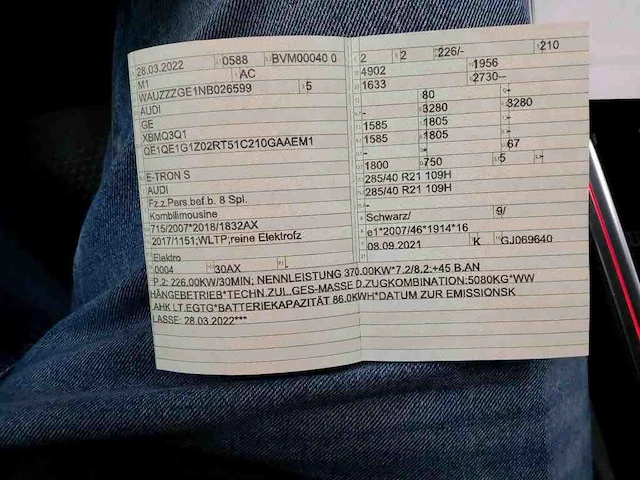 28.03.2022 0588 BVM00040 0
M1 AC
WAUZZZGE1NB026599 5
AUDI
GE
XBMQ3Q1
QE1QE1G1Z02RT51C210GAAEM1
E-TRON S
AUDI
Fz.z.Pers.bef.b. 8 Spl.
Kombilimousine
715/2007*2018/1832AX
2017/1151;WLTP;reine Elektrofz
Elektro
0004 30AX
P.2: 226.00KW/30MIN; NENNLEISTUNG 370.00KW*7.2/8.2:+45 B.AN
HÄNGEBETRIEB*TECHN.ZUL.GES-MASSE D.ZUGKOMBINATION:5080KG*WW
AHK LT.EGTG*BATTERIEKAPAZITÄT 86.0KWH*DATUM ZUR EMISSIONSK
LASSE: 28.03.2022***
2 2 226/- 210
4902 1956
1633 2730--
80
3280 3280
1585 1805
1585 1805
67
1800 750 5
285/40 R21 109H
285/40 R21 109H
Schwarz/ 9/
e1*2007/46*1914*16
08.09.2021 K GJ069640